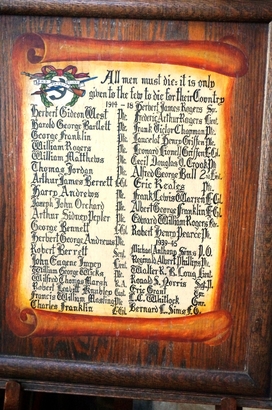 All men must die: it is only
given to the few to die for their Country
1914 - 18
Herbert Gideon West Pte.
Harold George Bartlett Pte.
George Franklin
William Rogers Pte.
William Matthews Pte.
Thomas Jordan Pte.
Arthur James Berrett
Harry Andrews Pte.
Joseph John Orchard
Arthur Sidney Pepler Pte.
George Bennett
Herbert George Andrews Pte.
Robert Berrett
John Eugene Impey Lieut.
William George Wicks Pte.
Wilfred Thomas Marsh R.A.
Robert Leavitt
Francis William Pte.
Charles Franklin
Herbert James Rogers
Frederic Arthur Rogers Lieut.
Frank Victor Chapman Pte.
Lancelot Henry Griffen
Leonard Lionel Griffen
Cecil Douglas O. Crook Pte.
Alfred George Ball 2nd Lieut.
Eric Reales Pte.
Frank Lewis Warren
Albert George Franklin
Edward William Rogers
Robert Henry Pearce Pte.
1939-45
Michael Anthony Sims P.O.
Reginald Albert Phillips Pte.
Walter K. R. Long Lieut.
Ronald S. Norris
Eric Grant
L. C. Whitlock Gnr.
Bernard L. Sims